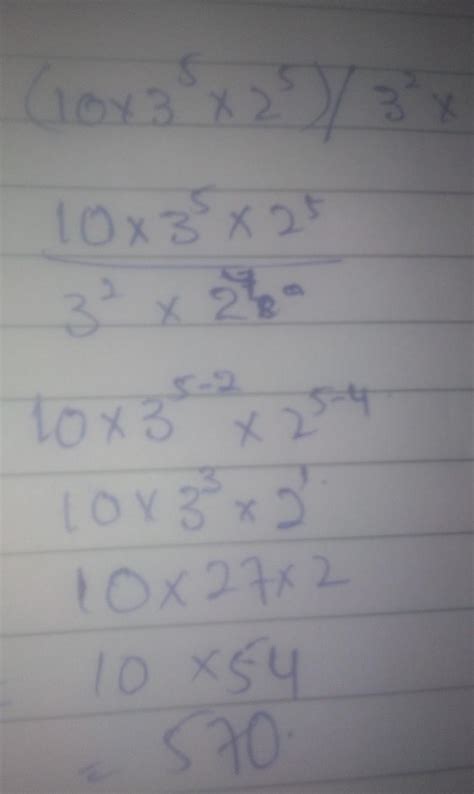 (10×3⁵×2⁵)/3²×
10×3⁵×2⁵
3²×2⁴
10×3⁵⁻²×2⁵⁻⁴
10×3³×2¹
10×27×2
10×54
=570.